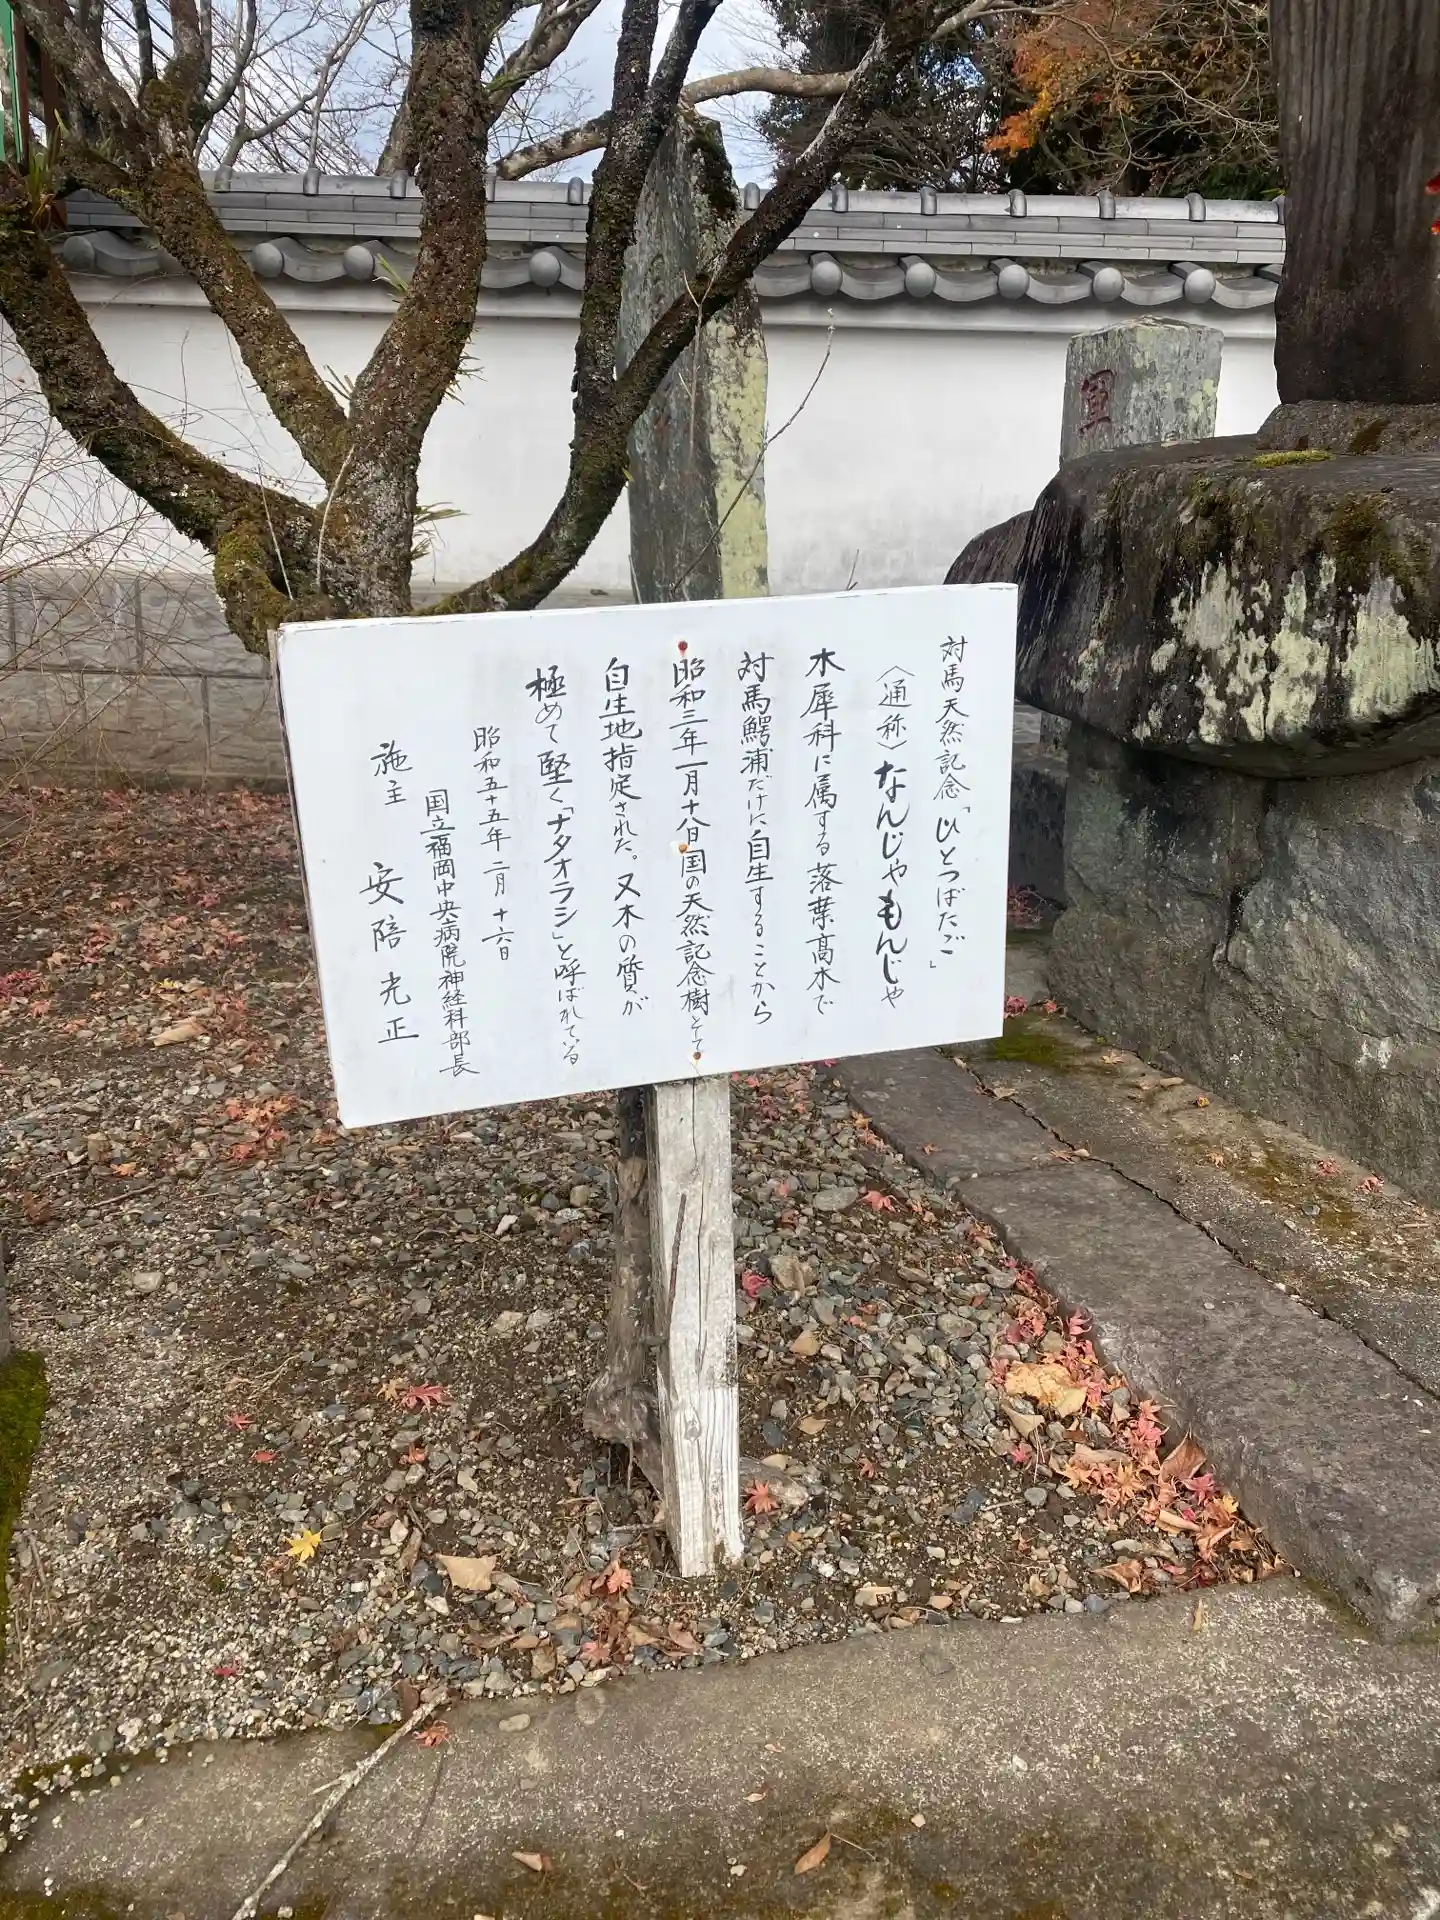 対馬天然記念「ひとつばたご」
〈通称〉なんじゃもんじゃ
木犀科に属する落葉高木で
対馬鰐浦だけに自生することから
昭和三年一月十八日国の天然記念樹として
自生地指定された。又木の質が
極めて堅く「ナタオラシ」と呼ばれている
昭和五十五年二月十六日
国立福岡中央病院神経科部長
施主 安陪光正
軍